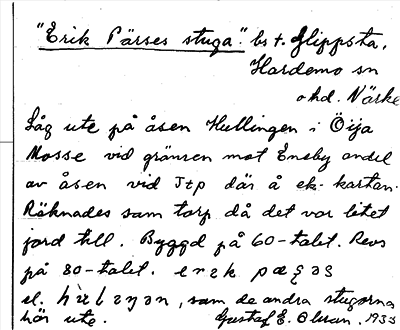 "Erik Pärses stuga". bs t. Glippsta,
Hardemo sn
o hd. Närke
Låg ute på åsen Hullingen i Öija
Mosse vid gränsen mot Eneby andel
av åsen vid Itp där å ek. kartan.
Räknades som torp då det var litet
jord till. Byggd på 60-talet. Revs
på 80-talet.
el. , som de andra stugorna
här ute. Gustaf E. Olsson. 1933